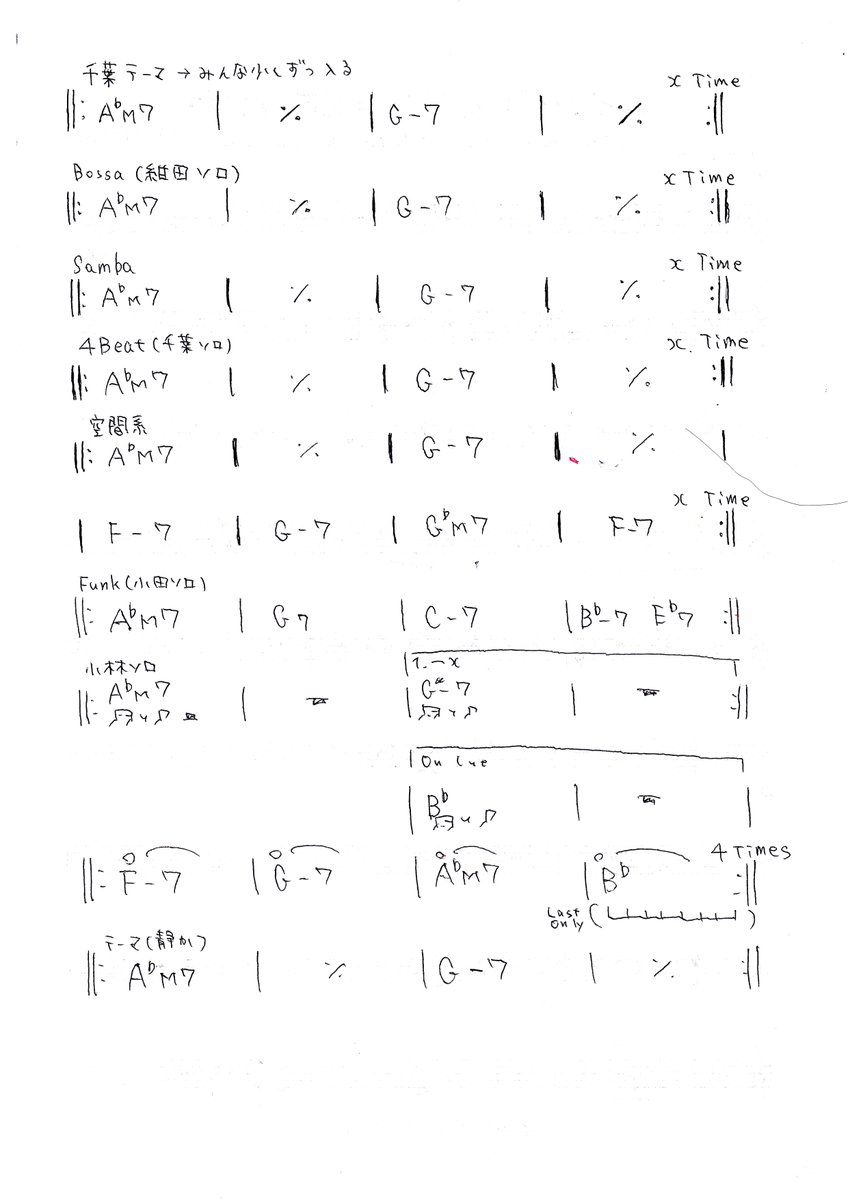 千葉 テーマ → みんな少しずつ入る x Time
||: A♭M7 | ٪ | G-7 | ٪ :||
Bossa (紺田ソロ) x Time
||: A♭M7 | ٪ | G-7 | ٪ :||
Samba x Time
||: A♭M7 | ٪ | G-7 | ٪ :||
4Beat (千葉ソロ) x. Time
||: A♭M7 | ٪ | G-7 | ٪ :||
空間系
||: A♭M7 | ٪ | G-7 | ٪ |
x Time
| F-7 | G-7 | G♭M7 | F-7 :||
Funk (小田ソロ)
||: A♭M7 | G7 | C-7 | B♭-7 E♭7 :||
小林ソロ 1.~x
||: A♭M7 | | G-7 | :||
On Cue
| B♭ | |
4 Times
||: F-7 | G-7 | A♭M7 | B♭ :||
Last Only ( )
テーマ (静か)
||: A♭M7 | ٪ | G-7 | ٪ :||